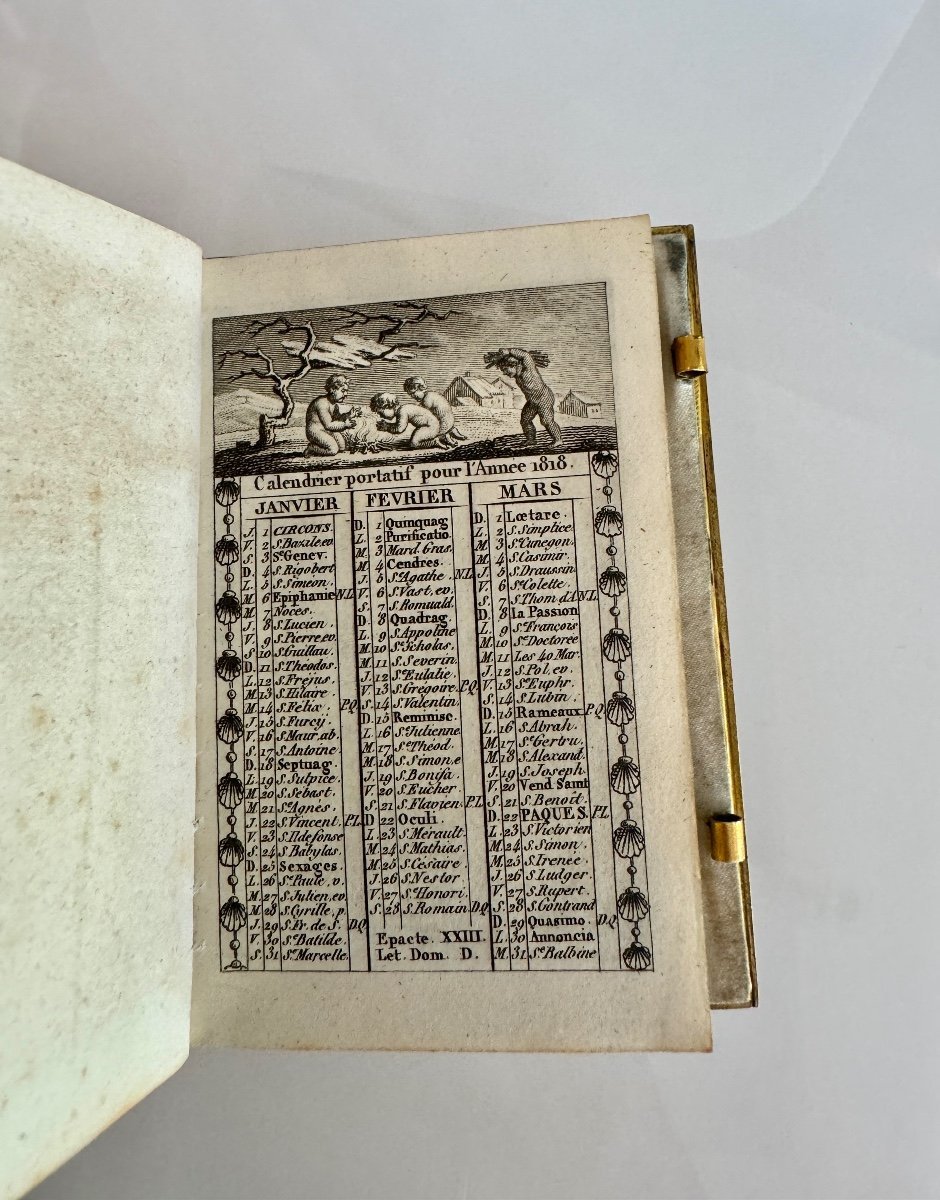 Calendrier portatif pour l'Annee 1818.
JANVIER
J. 1 CIRCONS.
V. 2 S. Bazile, ev.
S. 3 Ste Genev.
D. 4 S. Rigobert
L. 5 S. Simeon.
M. 6 Epiphanie N.L.
M. 7 Noces.
J. 8 S. Lucien.
V. 9 S. Pierre, ev.
S. 10 S. Guillau.
D. 11 S. Théodos.
L. 12 S. Fréjus.
M. 13 S. Hilaire.
M. 14 S. Félix. P.Q.
J. 15 S. Furcij.
V. 16 S. Maur, ab.
S. 17 S. Antoine.
D. 18 Septuag.
L. 19 S. Sulpice.
M. 20 S. Sebast.
M. 21 Ste Agnès.
J. 22 S. Vincent. P.L.
V. 23 S. Ildefonse
S. 24 S. Babylas.
D. 25 Sexages.
L. 26 Ste Paule, v.
M. 27 S. Julien, ev.
M. 28 S. Cyrille, p.
J. 29 S. Fr. de S. D.Q.
V. 30 Ste Batilde.
S. 31 Ste Marcelle.
FEVRIER
D. 1 Quinquag
L. 2 Purificatio.
M. 3 Mard. Gras.
M. 4 Cendres.
J. 5 Ste Agathe. N.L.
V. 6 S. Vast, ev.
S. 7 S. Romuald.
D. 8 Quadrag.
L. 9 S. Appoline
M. 10 Ste Scholas.
M. 11 S. Severin.
J. 12 Ste Eulalie.
V. 13 S. Gregoire. P.Q.
S. 14 S. Valentin.
D. 15 Reminisc.
L. 16 Ste Julienne
M. 17 S. Théod.
M. 18 S. Simon, e
J. 19 S. Bonifa.
V. 20 S. Eucher
S. 21 S. Flavien. P.L.
D 22 Oculi.
L. 23 S. Mérault.
M. 24 S. Mathias.
M. 25 S. Césaire.
J. 26 S. Nestor.
V. 27 S. Honori.
S. 28 S. Romain. D.Q.
Epacte. XXIII.
Let. Dom. D.
MARS
D. 1 Lœtare.
L. 2 S. Simplice.
M. 3 Ste Cunegon.
M. 4 S. Casimir.
J. 5 S. Draussin
V. 6 Ste Colette.
S. 7 S. Thom d'A. N.L.
D. 8 la Passion
L. 9 Ste Francois
M. 10 Ste Doctorée
M. 11 Les 40 Mar.
J. 12 S. Pol, ev.
V. 13 Ste Euphr.
S. 14 S. Lubin.
D. 15 Rameaux P.Q.
L. 16 S. Abrah.
M. 17 Ste Gertru.
M. 18 S. Alexand.
J. 19 S. Joseph.
V. 20 Vend. Saint
S. 21 S. Benoît.
D. 22 PAQUES. P.L.
L. 23 S. Victorien
M. 24 S. Simon.
M. 25 S. Irenee.
J. 26 S. Ludger.
V. 27 S. Rupert.
S. 28 S. Gontrand
D. 29 Quasimo. D.Q.
L. 30 Annoncia
M. 31 Ste Balbine